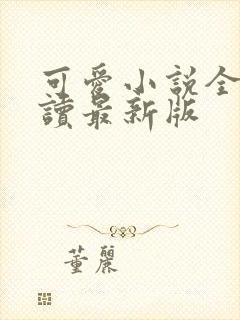 可愛小說全
讀最新版
董麗